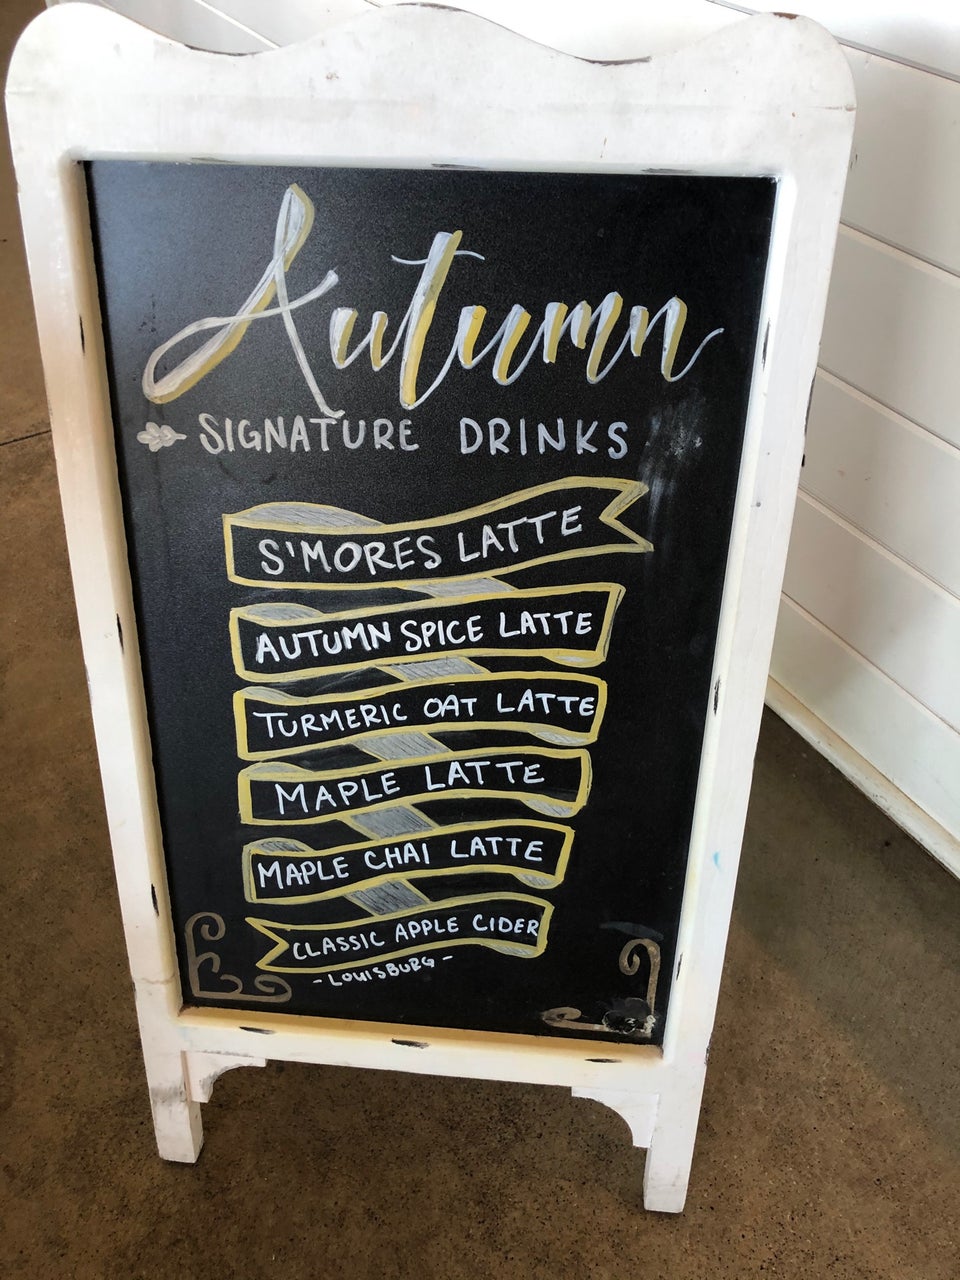 Autumn
SIGNATURE DRINKS
S'MORES LATTE
AUTUMN SPICE LATTE
TURMERIC OAT LATTE
MAPLE LATTE
MAPLE CHAI LATTE
CLASSIC APPLE CIDER
- LOUISBURG -